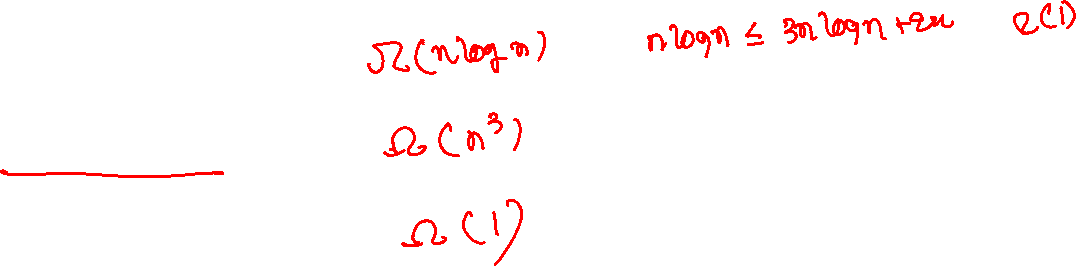 Ω(n log n) n log n ≤ 3n log n + 2n Ω(1)
Ω(n³)
Ω(1)